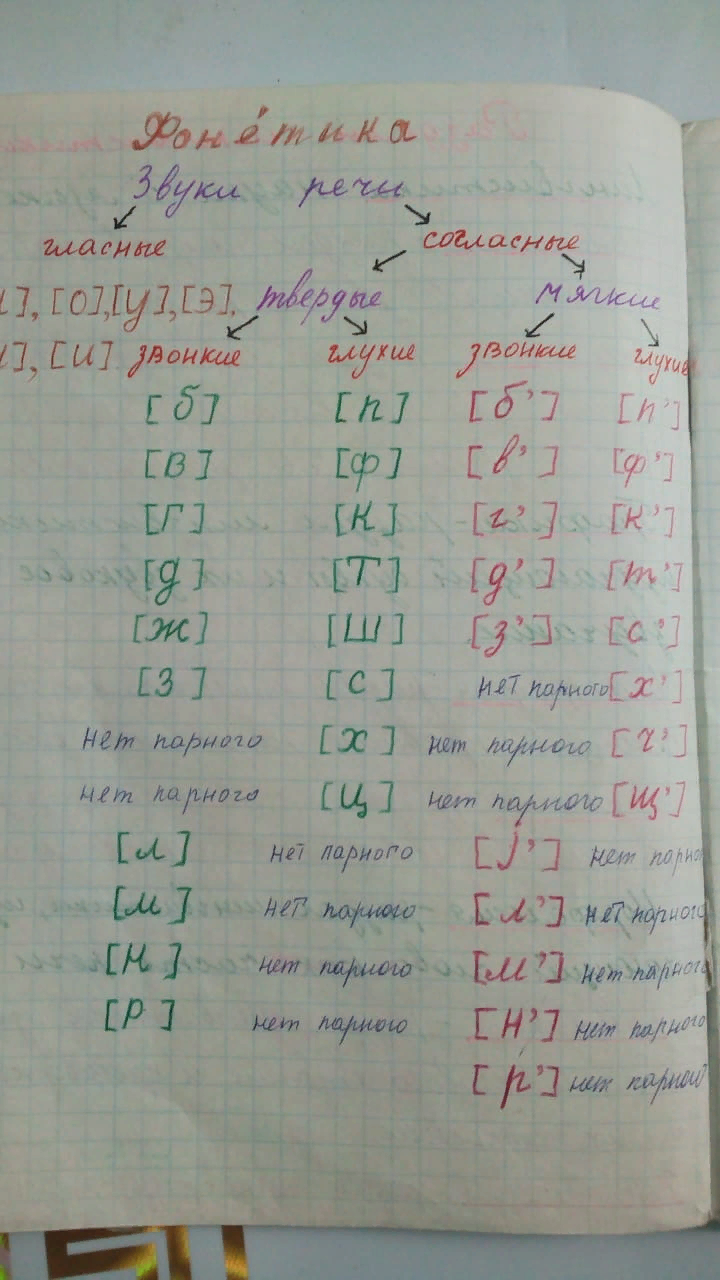 Фоне́тика
Звуки речи
гласные согласные
[О], [У], [Э], твердые мягкие
[И] звонкие глухие звонкие глухие
[б] [п] [б'] [п']
[в] [ф] [в'] [ф']
[г] [к] [г'] [к']
[д] [т] [д'] [т']
[ж] [ш] [з'] [с']
[з] [с] нет парного [х']
нет парного [х] нет парного [ч']
нет парного [ц] нет парного [щ']
[л] нет парного [j'] нет
[м] нет парного [л'] нет парного
[н] нет парного [м'] нет парного
[р] нет парного [н'] нет парного
[р'] нет парного